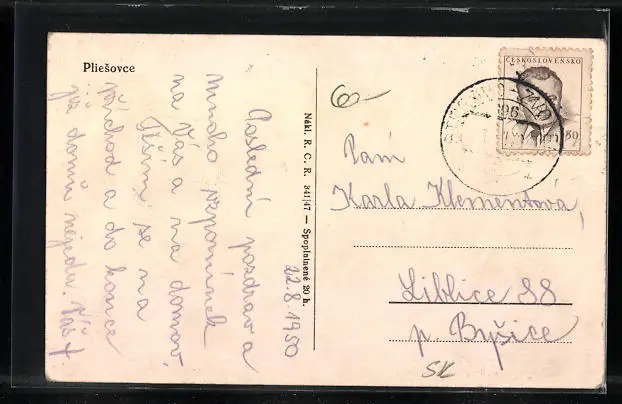 Pliešovce
22.8.1950
Poslední pozdrav a
mnoho vzpomínek
na Vás a na domov.
Těším se na
příchod a do konce
již domů nejedu. Váš
Nákl. R. C. R. 341/47 — Spoplatnené 20 h.
60
ČESKOSLOVENSKO
50
Paní
Karla Klementová,
Liblice 88
p. Byšice
SK